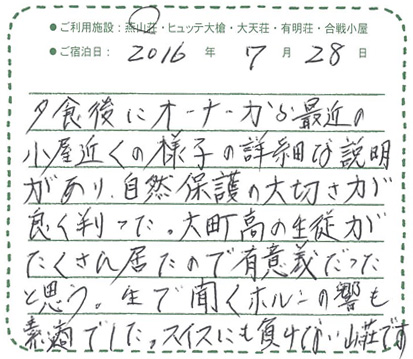 ●ご利用施設：燕山荘・ヒュッテ大槍・大天荘・有明荘・合戦小屋
●ご宿泊日：2016年7月28日
夕食後にオーナーから最近の
小屋近くの様子の詳細な説明
があり、自然保護の大切さが
良く判った。大町高の生徒が
たくさん居たので有意義だった
と思う。生で聞くホルンの響も
素適でした。スイスにも負けない山荘です